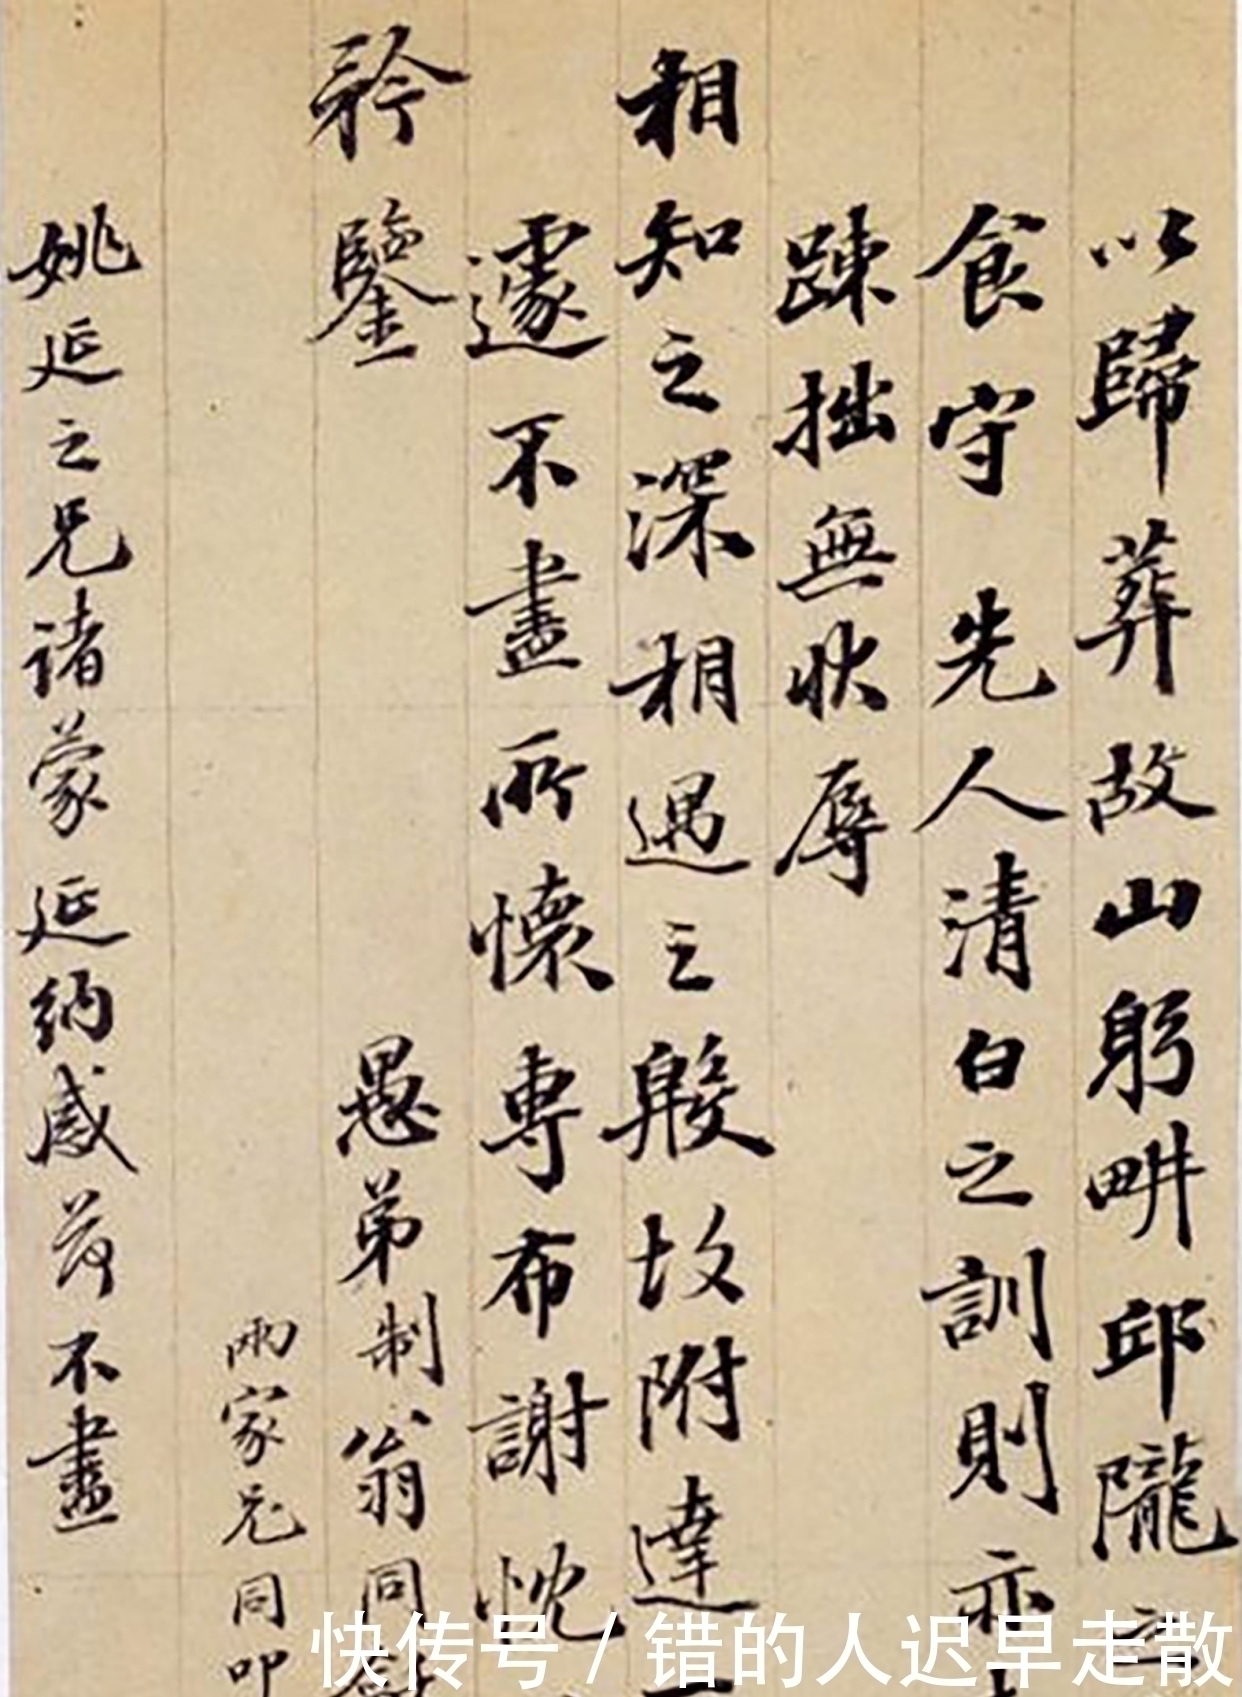 以歸葬故山躬畊邱隴之
食守先人清白之訓則亦
踈拙無狀辱
相知之深相遇之殷故附達
遽不盡所懷專布謝忱
矜鑒
愚弟制翁同
兩家兄同叩
姚延之兄諸蒙延納感荷不盡
快传号/错的人迟早走散